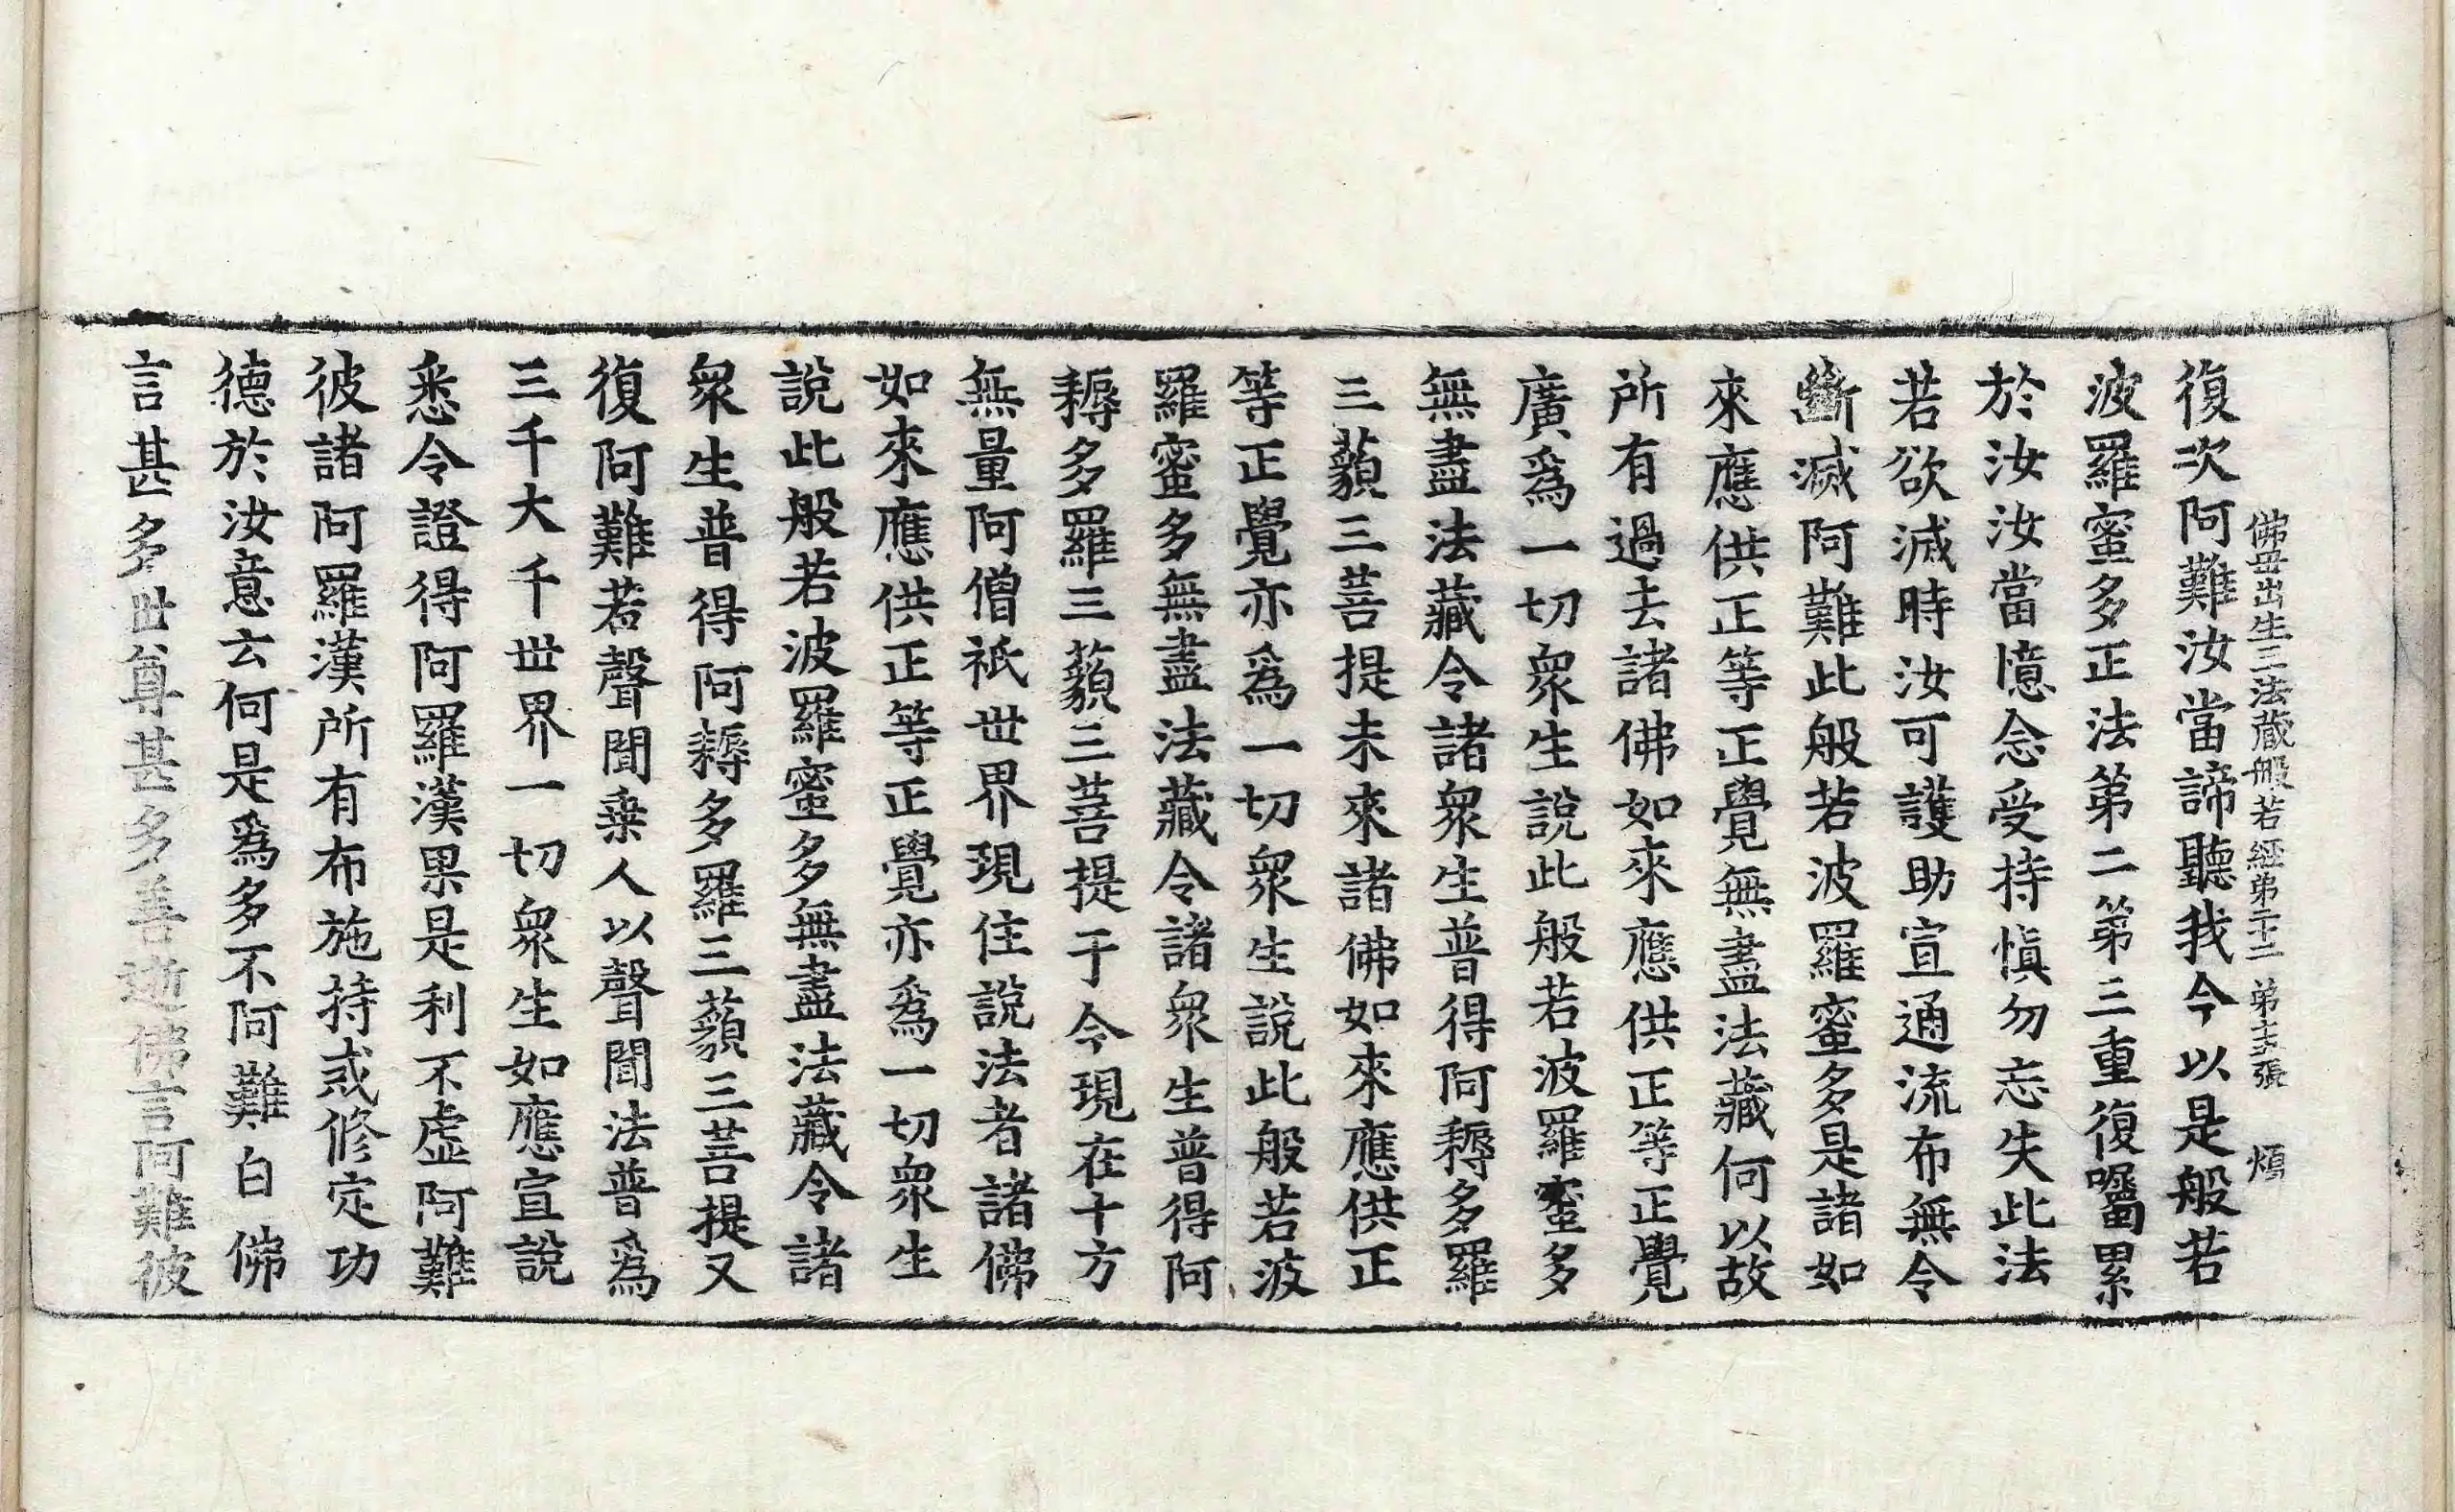 佛母出生三法藏般若經第二十二　第十六張　煩
復次阿難汝當諦聽我今以是般若
波羅蜜多正法第二第三重復囑累
於汝汝當憶念受持愼勿忘失此法
若欲滅時汝可護助宣通流布無令
斷滅阿難此般若波羅蜜多是諸如
來應供正等正覺無盡法藏何以故
所有過去諸佛如來應供正等正覺
廣爲一切衆生說此般若波羅蜜多
無盡法藏令諸衆生普得阿耨多羅
三藐三菩提未來諸佛如來應供正
等正覺亦爲一切衆生說此般若波
羅蜜多無盡法藏令諸衆生普得阿
耨多羅三藐三菩提于今現在十方
無量阿僧祇世界現住說法者諸佛
如來應供正等正覺亦爲一切衆生
說此般若波羅蜜多無盡法藏令諸
衆生普得阿耨多羅三藐三菩提又
復阿難若聲聞乗人以聲聞法普爲
三千大千世界一切衆生如應宣說
悉令證得阿羅漢果是利不虛阿難
彼諸阿羅漢所有布施持戒修定功
德於汝意云何是爲多不阿難白佛
言甚多世尊甚多善逝佛言阿難彼